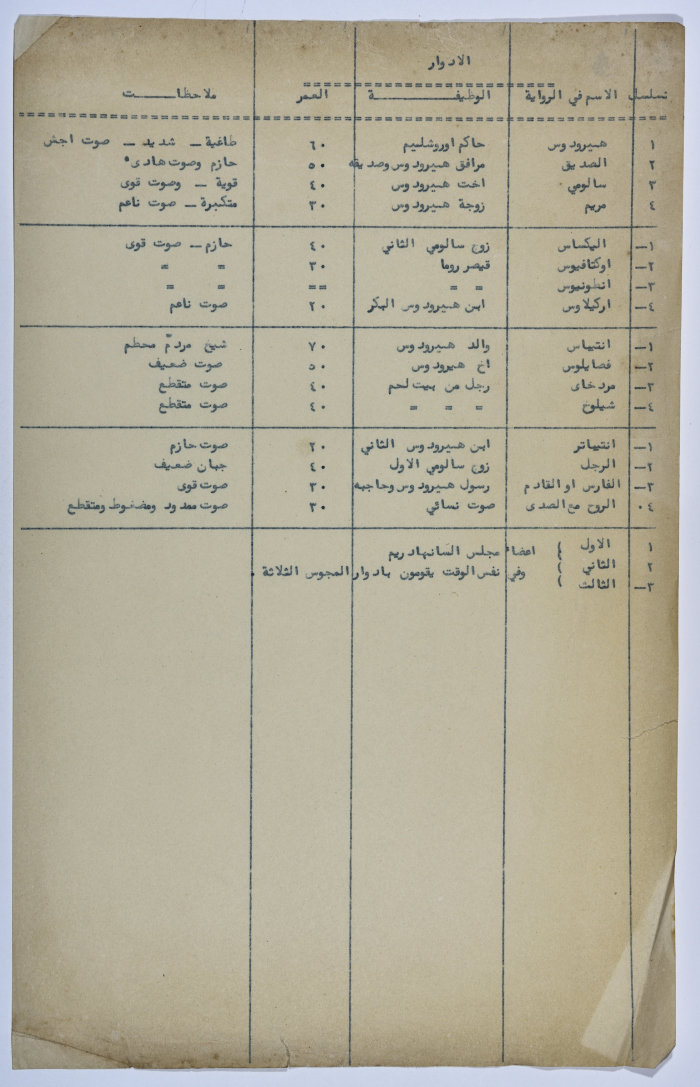 الادوار
تسلسل الاسم في الرواية الوظيفـــــة العمر ملاحظـــات
١ هـيرودوس حاكم اوروشليم ٦٠ طاغية ـ شديد ـ صوت اجش
٢ الصديق مرافق هـيرودوس وصديقه ٥٠ حازم وصوت هادىء
٣ سالومي اخت هـيرودوس ٤٠ قوية ـ وصوت قوى
٤ مريم زوجة هـيرودوس ٣٠ متكبرة ـ صوت ناعم
١ـ اليكساس زوج سالومي الثاني ٤٠ حازم ـ صوت قوى
٢ـ اوكتافيوس قيصر روما ٣٠ = =
٣ـ انطونيوس = = == = =
٤ـ اركيلاوس ابن هـيرودوس البكر ٢٠ صوت ناعم
١ـ انتيباس والد هـيرودوس ٧٠ شيخ مردمّ محطم
٢ـ فصايلوس اخ هـيرودوس ٥٠ صوت ضعيف
٣ـ مردخاى رجل من بيت لحم ٤٠ صوت متقطع
٤ـ شيلوخ = = = ٤٠ صوت متقطع
١ـ انتيباتر ابن هـيرودوس الثاني ٢٠ صوت حازم
٢ـ الرجل زوج سالومي الاول ٤٠ جبان ضعيف
٣ـ الفارس او القادم رسول هـيرودوس وحاجبه ٣٠ صوت قوى
٤٠ الروح مع الصدى صوت نسائي ٣٠ صوت ممدود ومضغوط ومتقطع
١ الاول اعضاء مجلس السانهادريم
٢ الثاني وفي نفس الوقت يقومون بادوار المجوس الثلاثة ٠
٣ـ الثالث